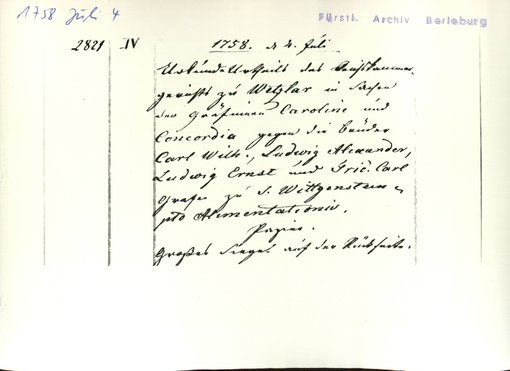 1758 Juli 4
Fürstl. Archiv Berleburg
2821 IV 1758. d 4. Juli
Urkunde Urtheils des Reichskammer
gerichts zu Wetzlar in Sachen
der Gräfinnen Caroline und
Concordia gegen die brüder
Carl Wilh., Ludwig Alexander,
Ludwig Ernst und Fried. Carl
Grafen zu S. Wittgenstein
pto Alimentationis.
Papier.
Großes Siegel auf der Rückseite.